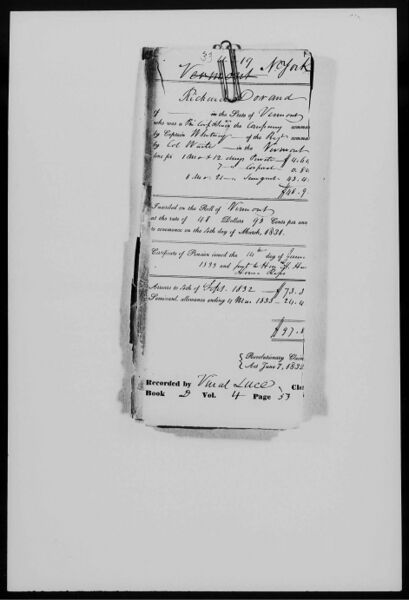 33 17 N. York
Vermont
Richard Dorand
of in the State of Vermont
who was a in the company commanded
by Captain Whitney of the Regt commanded
by Col Waite in the Vermont
line for 1 Mo + 12 days Private $4.60
7 Corporal 0.84
1 Mo. 21 Sergeant 43.4
$48.9
Inscribed on the Roll of Vermont
at the rate of 48 Dollars 93 Cents per ann
to commence on the 4th day of March, 1831.
Certificate of Pension issued the 14th day of June
1833 and sent to Hon. H.
Arrears to 4th of Sept. 1832 $73.3
Semi-anl. allowance ending 4 Mar 1833 24.4
$97.8
{ Revolutionary Claim
Act June 7, 1832
Recorded by Clk
Book D Vol. 4 Page 53